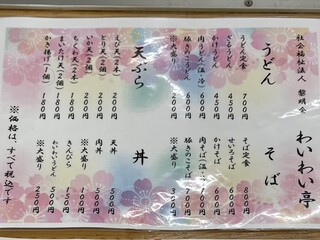 社会福祉法人 黎明会
わいわい亭
うどん
うどん定食 700円
ざるうどん 450円
かけうどん 450円
肉うどん(温・冷) 600円
豚きのこうどん 600円
※大盛り 200円
そば
そば定食 800円
せいろそば 600円
かけそば 600円
豚きのこそば 700円
※大盛り 300円
天ぷら
えび天(2本) 200円
とり天(2個) 200円
いか天(2個) 180円
ちくわ天(2本) 180円
まいたけ天(2個) 180円
かき揚げ(1個) 180円
丼
天丼 500円
肉丼 500円
※大盛り 100円
きんぴら 150円
わいわいうどん 500円
※大盛り 250円
※価格は、すべて税込です